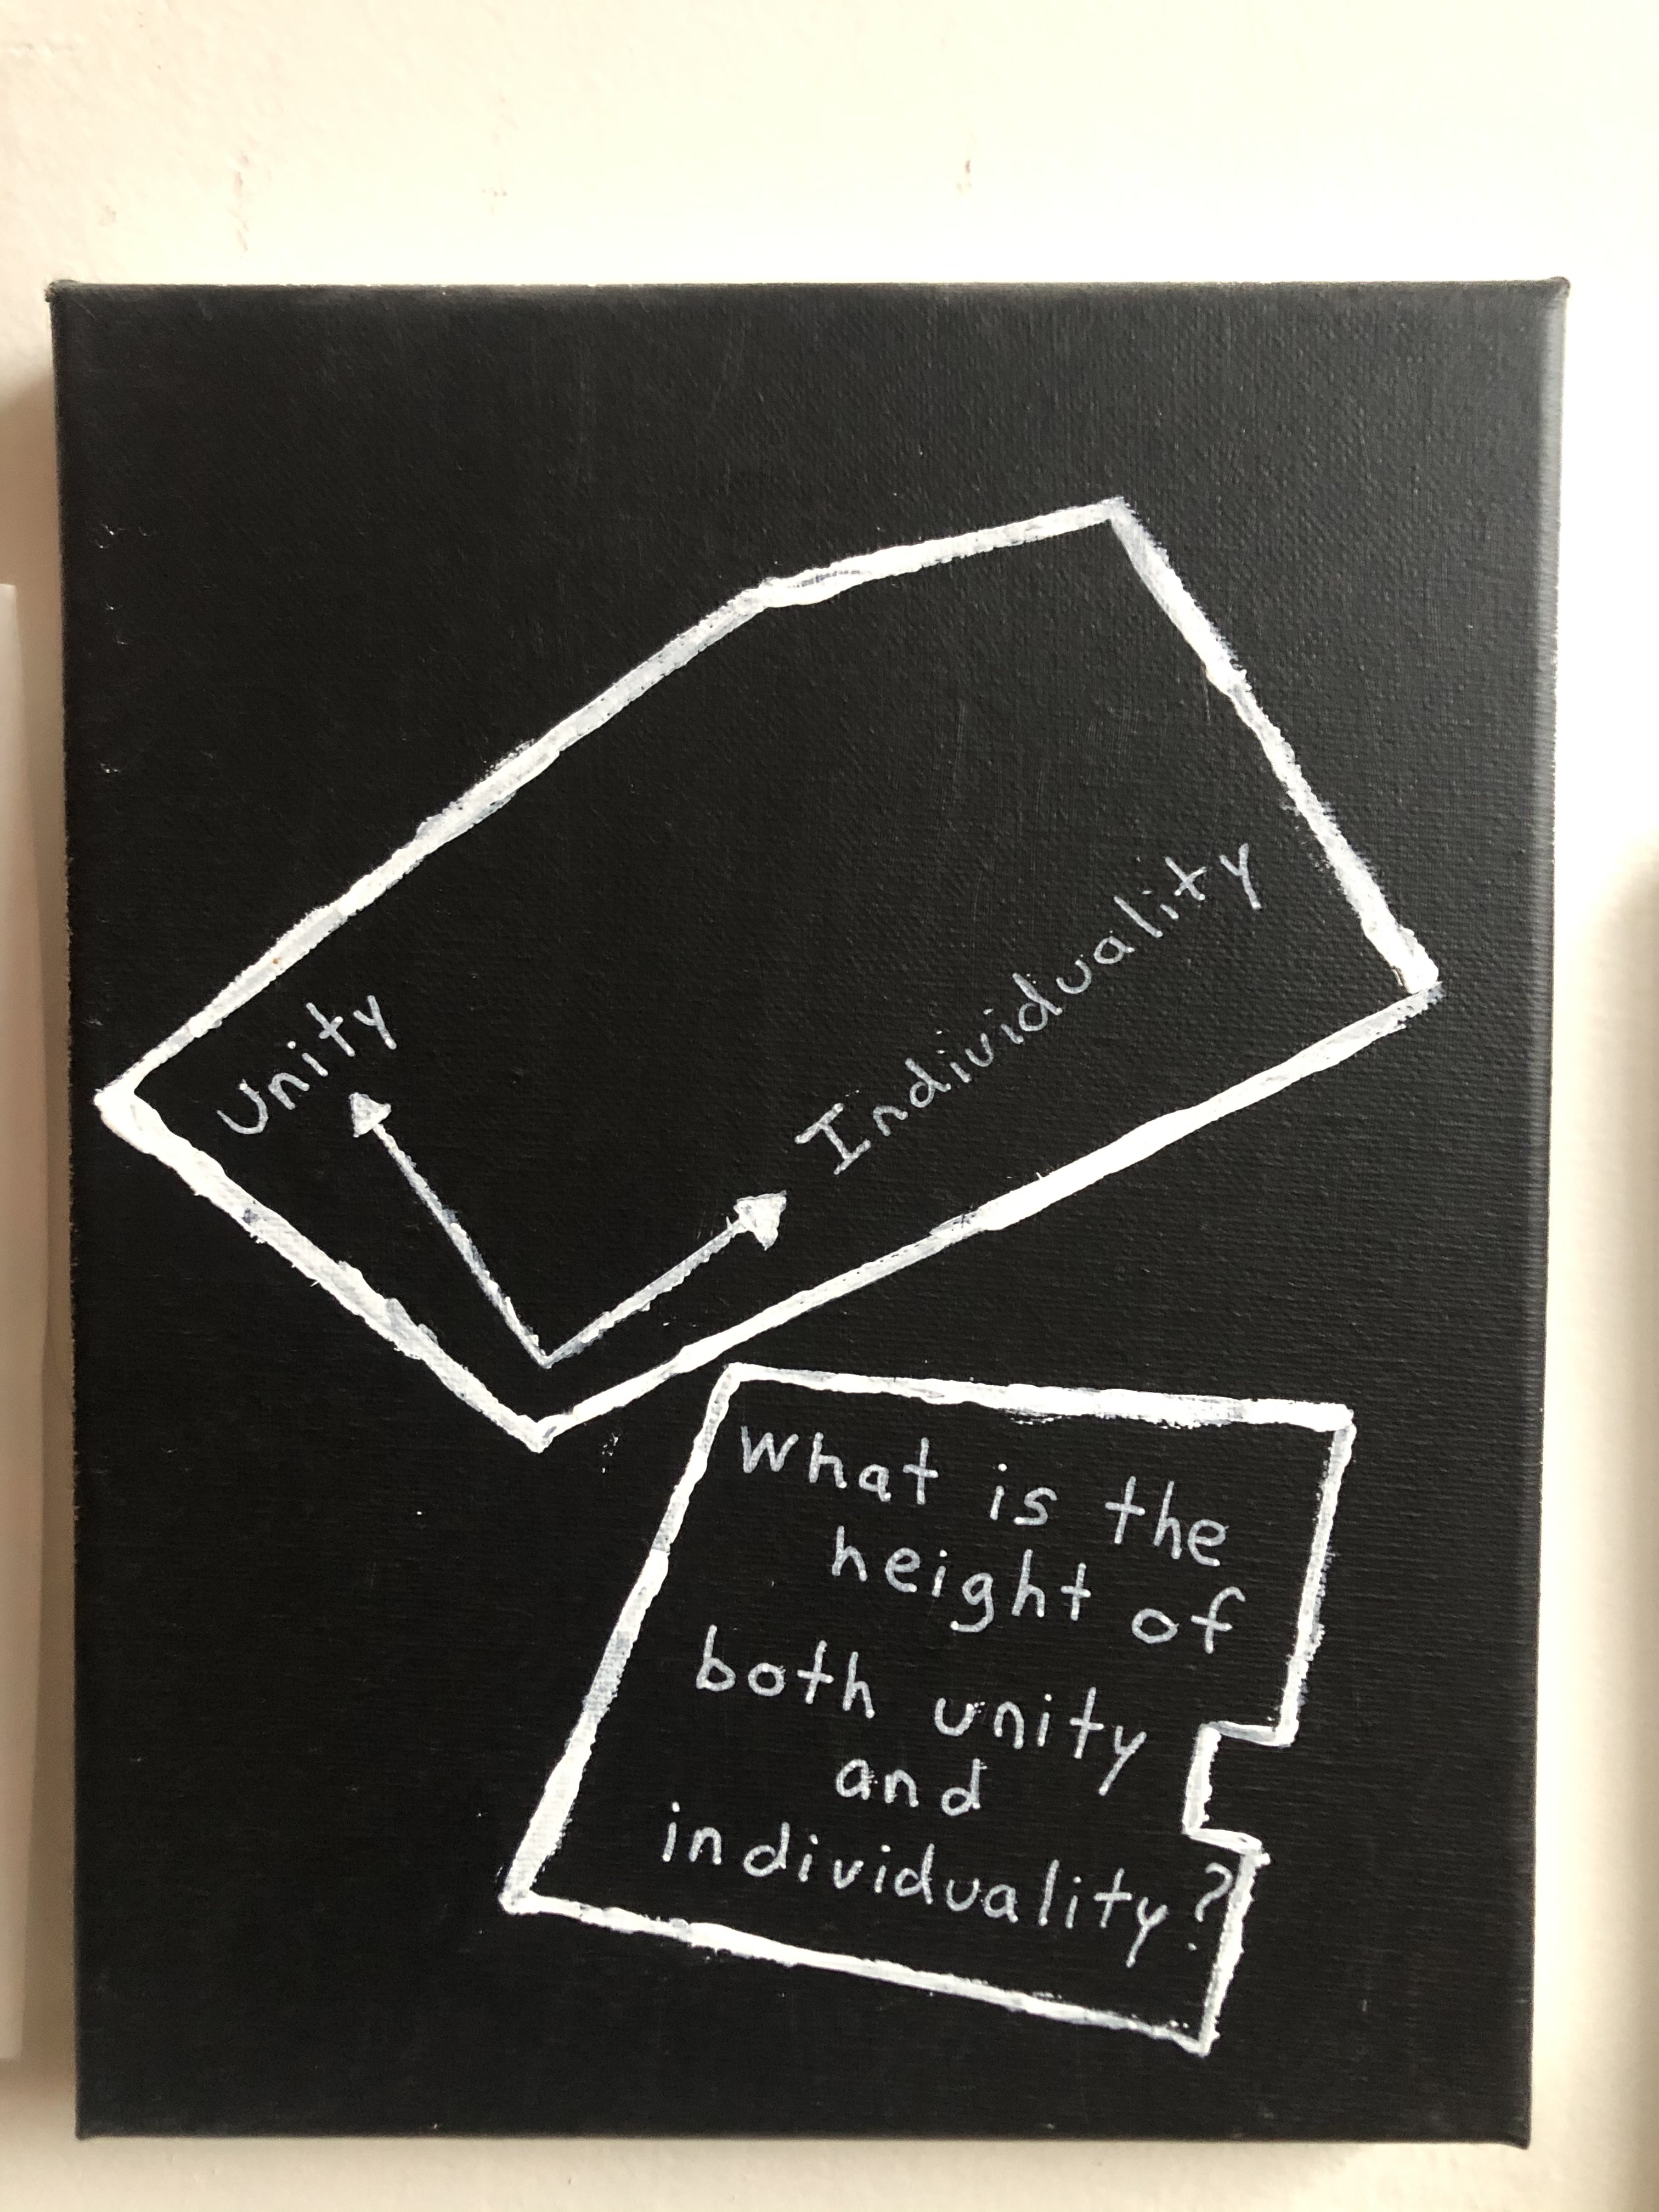 Unity
Individuality
What is the
height of
both unity
and
individuality?